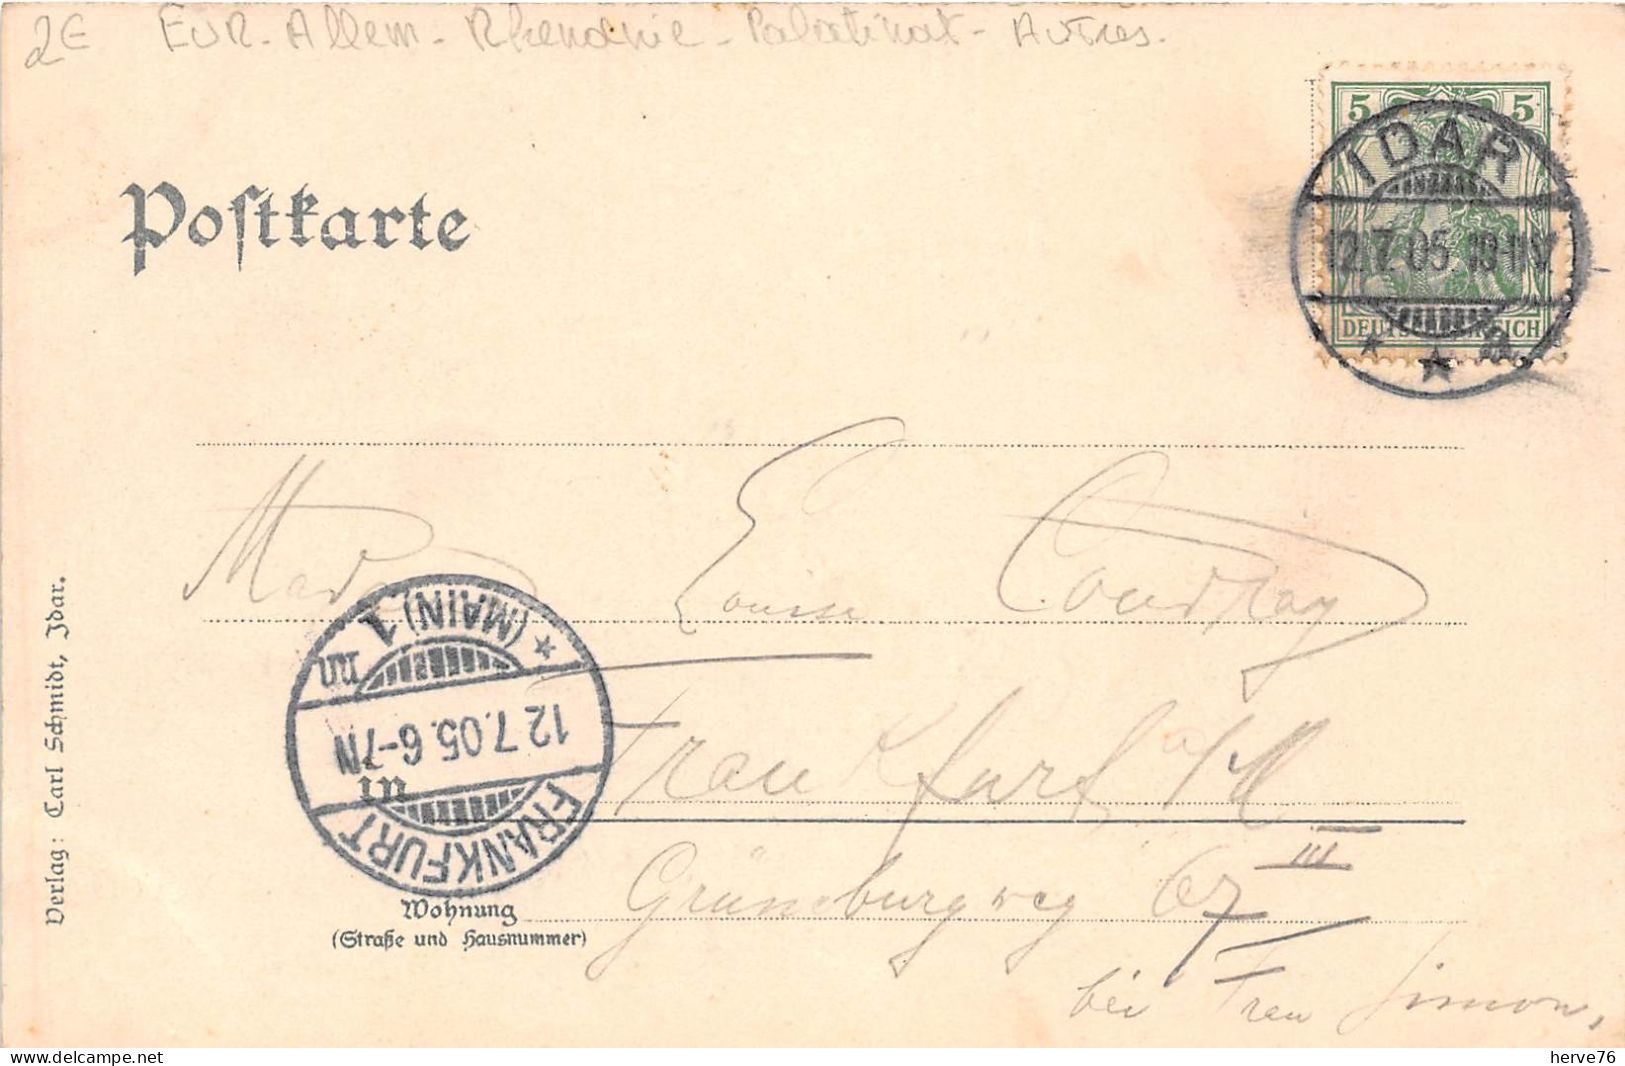 2€ EUR - Allem - Rhénanie - Palatinat - Autres.
Postkarte
5 5
DEUTSCHES REICH
IDAR
12.7.05. 10-11V.
* * a
Louise Coudray
FRANKFURT
12.7.05. 6-7N
* (MAIN) 1
in
Frankfurt a/M
Grüneburgweg 67 III
Wohnung
(Straße und Hausnummer)
bei Frau Simon,
Verlag: Carl Schmidt, Idar.
herve76